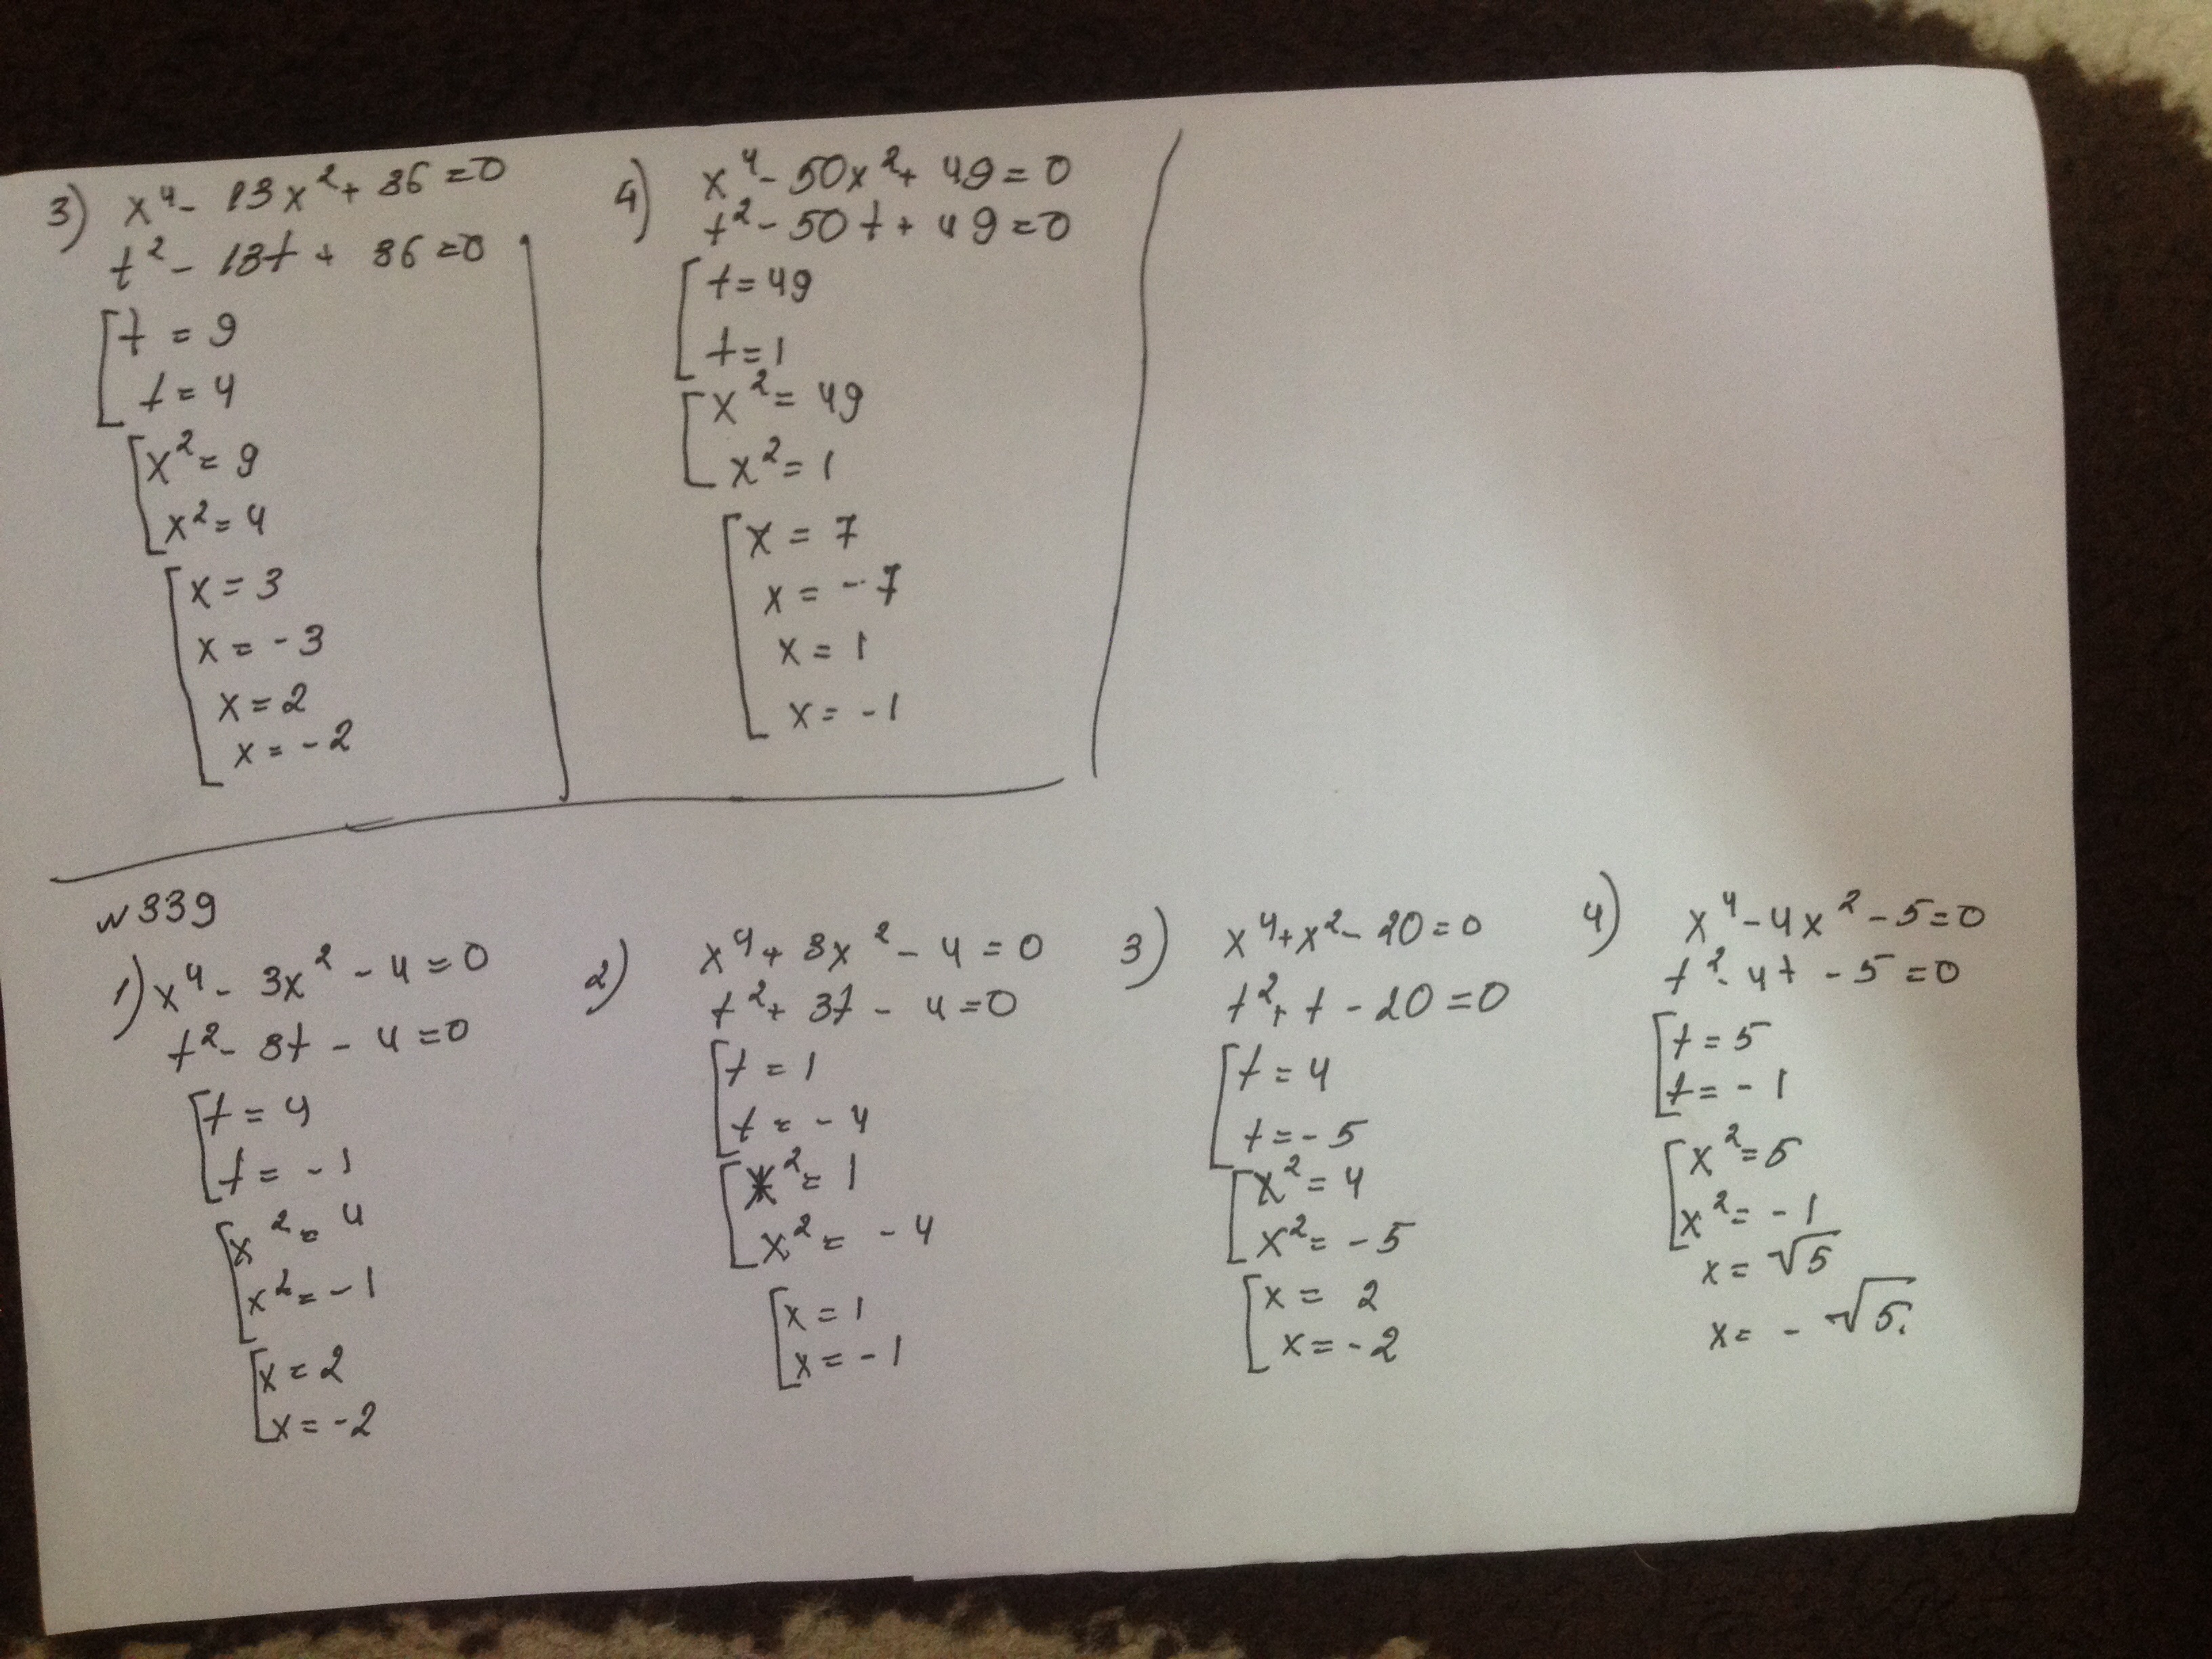 3) x⁴ - 13x² + 36 = 0
t² - 13t + 36 = 0
[t = 9
t = 4
[x² = 9
x² = 4
[x = 3
x = -3
x = 2
x = -2
4) x⁴ - 50x² + 49 = 0
t² - 50t + 49 = 0
[t = 49
t = 1
[x² = 49
x² = 1
[x = 7
x = -7
x = 1
x = -1
№339
1) x⁴ - 3x² - 4 = 0
t² - 3t - 4 = 0
[t = 4
t = -1
[x² = 4
x² = -1
[x = 2
x = -2
2) x⁴ + 3x² - 4 = 0
t² + 3t - 4 = 0
[t = 1
t = -4
[x² = 1
x² = -4
[x = 1
x = -1
3) x⁴ + x² - 20 = 0
t² + t - 20 = 0
[t = 4
t = -5
[x² = 4
x² = -5
[x = 2
x = -2
4) x⁴ - 4x² - 5 = 0
t² - 4t - 5 = 0
[t = 5
t = -1
[x² = 5
x² = -1
x = √5
x = -√5.